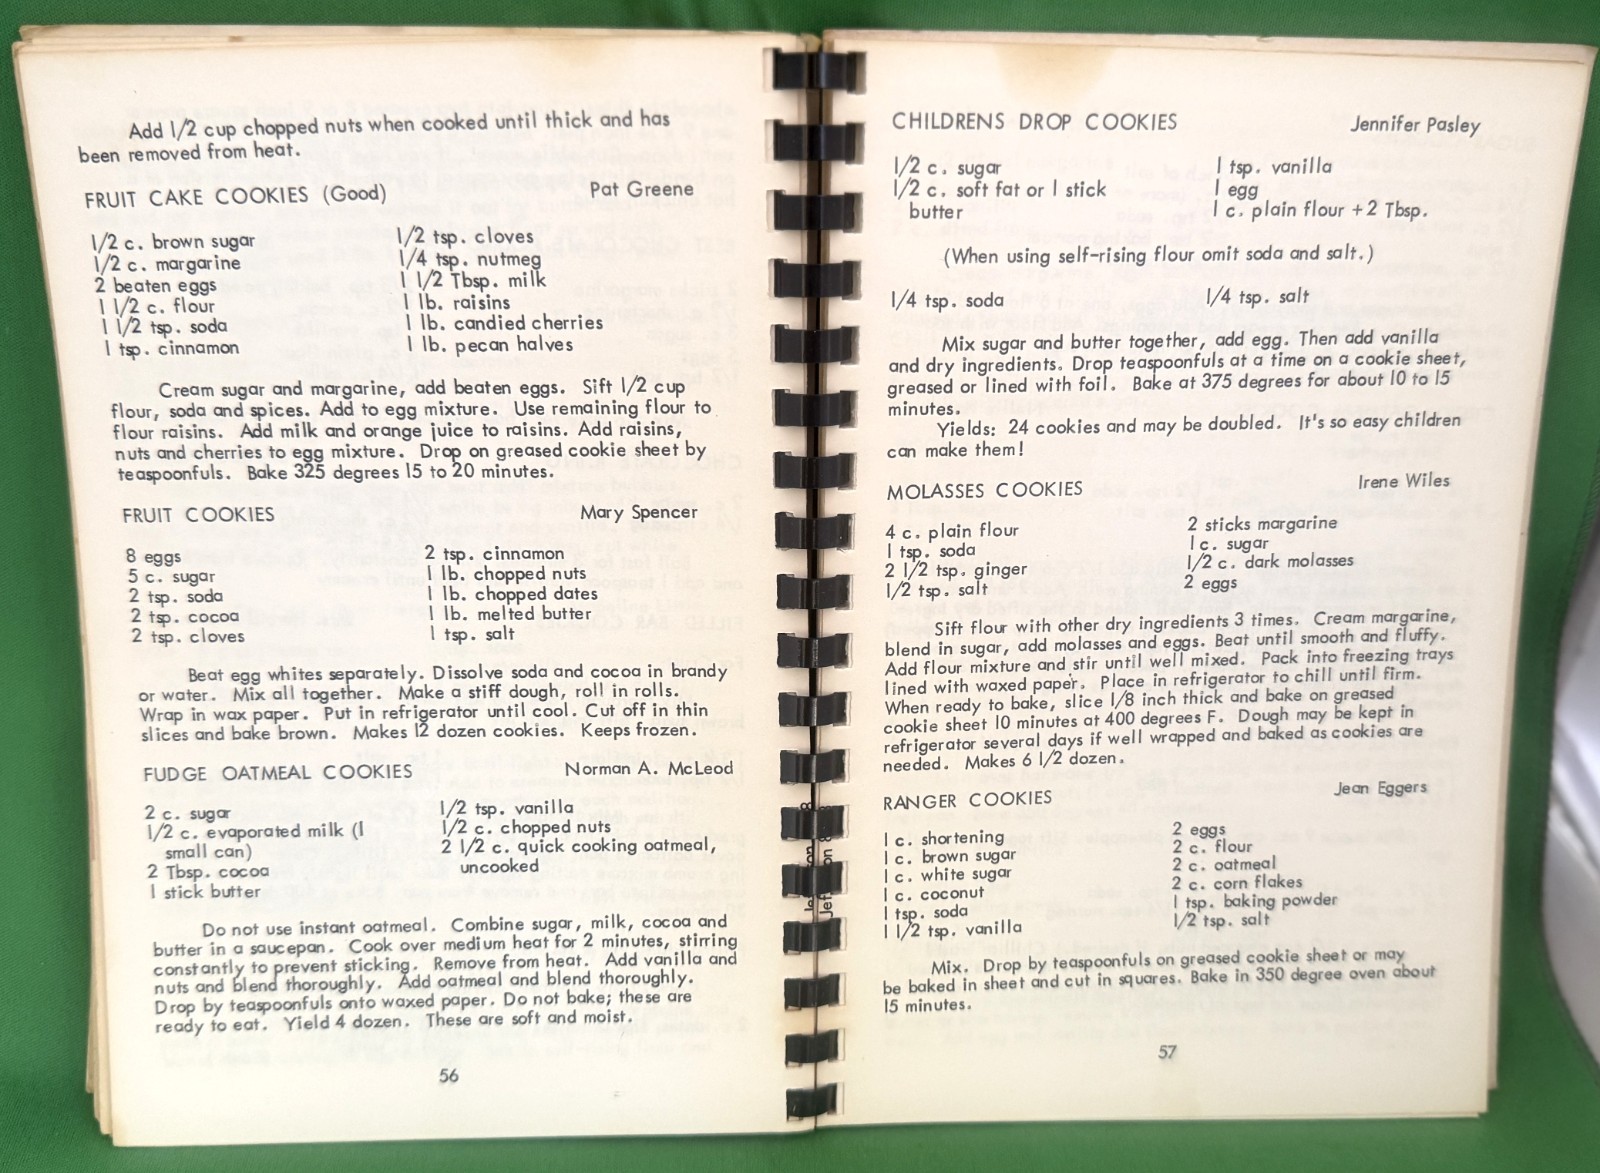 Add 1/2 cup chopped nuts when cooked until thick and has
been removed from heat.
FRUIT CAKE COOKIES (Good) Pat Greene
1/2 c. brown sugar 1/2 tsp. cloves
1/2 c. margarine 1/4 tsp. nutmeg
2 beaten eggs 1 1/2 Tbsp. milk
1 1/2 c. flour 1 lb. raisins
1 1/2 tsp. soda 1 lb. candied cherries
1 tsp. cinnamon 1 lb. pecan halves
Cream sugar and margarine, add beaten eggs. Sift 1/2 cup
flour, soda and spices. Add to egg mixture. Use remaining flour to
flour raisins. Add milk and orange juice to raisins. Add raisins,
nuts and cherries to egg mixture. Drop on greased cookie sheet by
teaspoonfuls. Bake 325 degrees 15 to 20 minutes.
FRUIT COOKIES Mary Spencer
8 eggs 2 tsp. cinnamon
5 c. sugar 1 lb. chopped nuts
2 tsp. soda 1 lb. chopped dates
2 tsp. cocoa 1 lb. melted butter
2 tsp. cloves 1 tsp. salt
Beat egg whites separately. Dissolve soda and cocoa in brandy
or water. Mix all together. Make a stiff dough, roll in rolls.
Wrap in wax paper. Put in refrigerator until cool. Cut off in thin
slices and bake brown. Makes 12 dozen cookies. Keeps frozen.
FUDGE OATMEAL COOKIES Norman A. McLeod
2 c. sugar 1/2 tsp. vanilla
1/2 c. evaporated milk (1 1/2 c. chopped nuts
small can) 2 1/2 c. quick cooking oatmeal,
2 Tbsp. cocoa uncooked
1 stick butter
Do not use instant oatmeal. Combine sugar, milk, cocoa and
butter in a saucepan. Cook over medium heat for 2 minutes, stirring
constantly to prevent sticking. Remove from heat. Add vanilla and
nuts and blend thoroughly. Add oatmeal and blend thoroughly.
Drop by teaspoonfuls onto waxed paper. Do not bake; these are
ready to eat. Yield 4 dozen. These are soft and moist.
56
CHILDRENS DROP COOKIES Jennifer Pasley
1/2 c. sugar 1 tsp. vanilla
1/2 c. soft fat or 1 stick 1 egg
butter 1 c. plain flour +2 Tbsp.
(When using self-rising flour omit soda and salt.)
1/4 tsp. soda 1/4 tsp. salt
Mix sugar and butter together, add egg. Then add vanilla
and dry ingredients. Drop teaspoonfuls at a time on a cookie sheet,
greased or lined with foil. Bake at 375 degrees for about 10 to 15
minutes.
Yields: 24 cookies and may be doubled. It's so easy children
can make them!
MOLASSES COOKIES Irene Wiles
4 c. plain flour 2 sticks margarine
1 tsp. soda 1 c. sugar
2 1/2 tsp. ginger 1/2 c. dark molasses
1/2 tsp. salt 2 eggs
Sift flour with other dry ingredients 3 times. Cream margarine,
blend in sugar, add molasses and eggs. Beat until smooth and fluffy.
Add flour mixture and stir until well mixed. Pack into freezing trays
lined with waxed paper. Place in refrigerator to chill until firm.
When ready to bake, slice 1/8 inch thick and bake on greased
cookie sheet 10 minutes at 400 degrees F. Dough may be kept in
refrigerator several days if well wrapped and baked as cookies are
needed. Makes 6 1/2 dozen.
RANGER COOKIES Jean Eggers
1 c. shortening 2 eggs
1 c. brown sugar 2 c. flour
1 c. white sugar 2 c. oatmeal
1 c. coconut 2 c. corn flakes
1 tsp. soda 1 tsp. baking powder
1 1/2 tsp. vanilla 1/2 tsp. salt
Mix. Drop by teaspoonfuls on greased cookie sheet or may
be baked in sheet and cut in squares. Bake in 350 degree oven about
15 minutes.
57